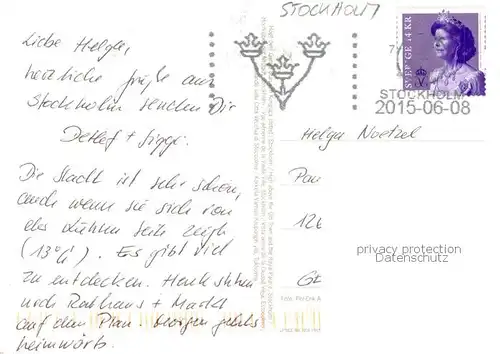 STOCKHOLM
Liebe Helga,
herzliche Grüße aus
Stockholm senden Dir
Detlef + Siggi.
Die Stadt ist sehr schön,
auch wenn sie sich von
der kühlen Seite zeigt
(13°C). Es gibt viel
zu entdecken. Heute stehen
noch Rathaus + Markt
auf dem Plan. Morgen geht's
heimwärts.
SVERIGE 14 KR
STOCKHOLM
2015-06-08
Helga Noetzel
privacy protection
Datenschutz